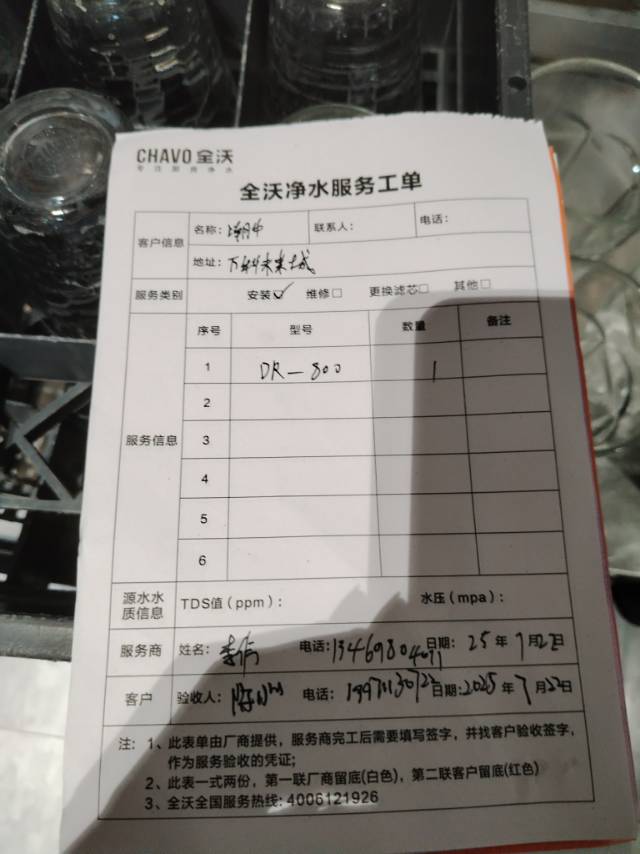 CHAVO 全沃
专注厨房净水
全沃净水服务工单
客户信息
名称: 联系人: 电话:
地址: 万科未来城
服务类别 安装☑ 维修□ 更换滤芯□ 其他□
服务信息
序号 型号 数量 备注
1 DR-800 1
2
3
4
5
6
源水水质信息 TDS值(ppm): 水压(mpa):
服务商 姓名: 电话: 日期: 25年7月22日
客户 验收人: 电话: 日期:2025年7月22日
注: 1、此表单由厂商提供，服务商完工后需要填写签字，并找客户验收签字，
作为服务验收的凭证;
2、此表一式两份，第一联厂商留底(白色)，第二联客户留底(红色)
3、全沃全国服务热线: 4006121926